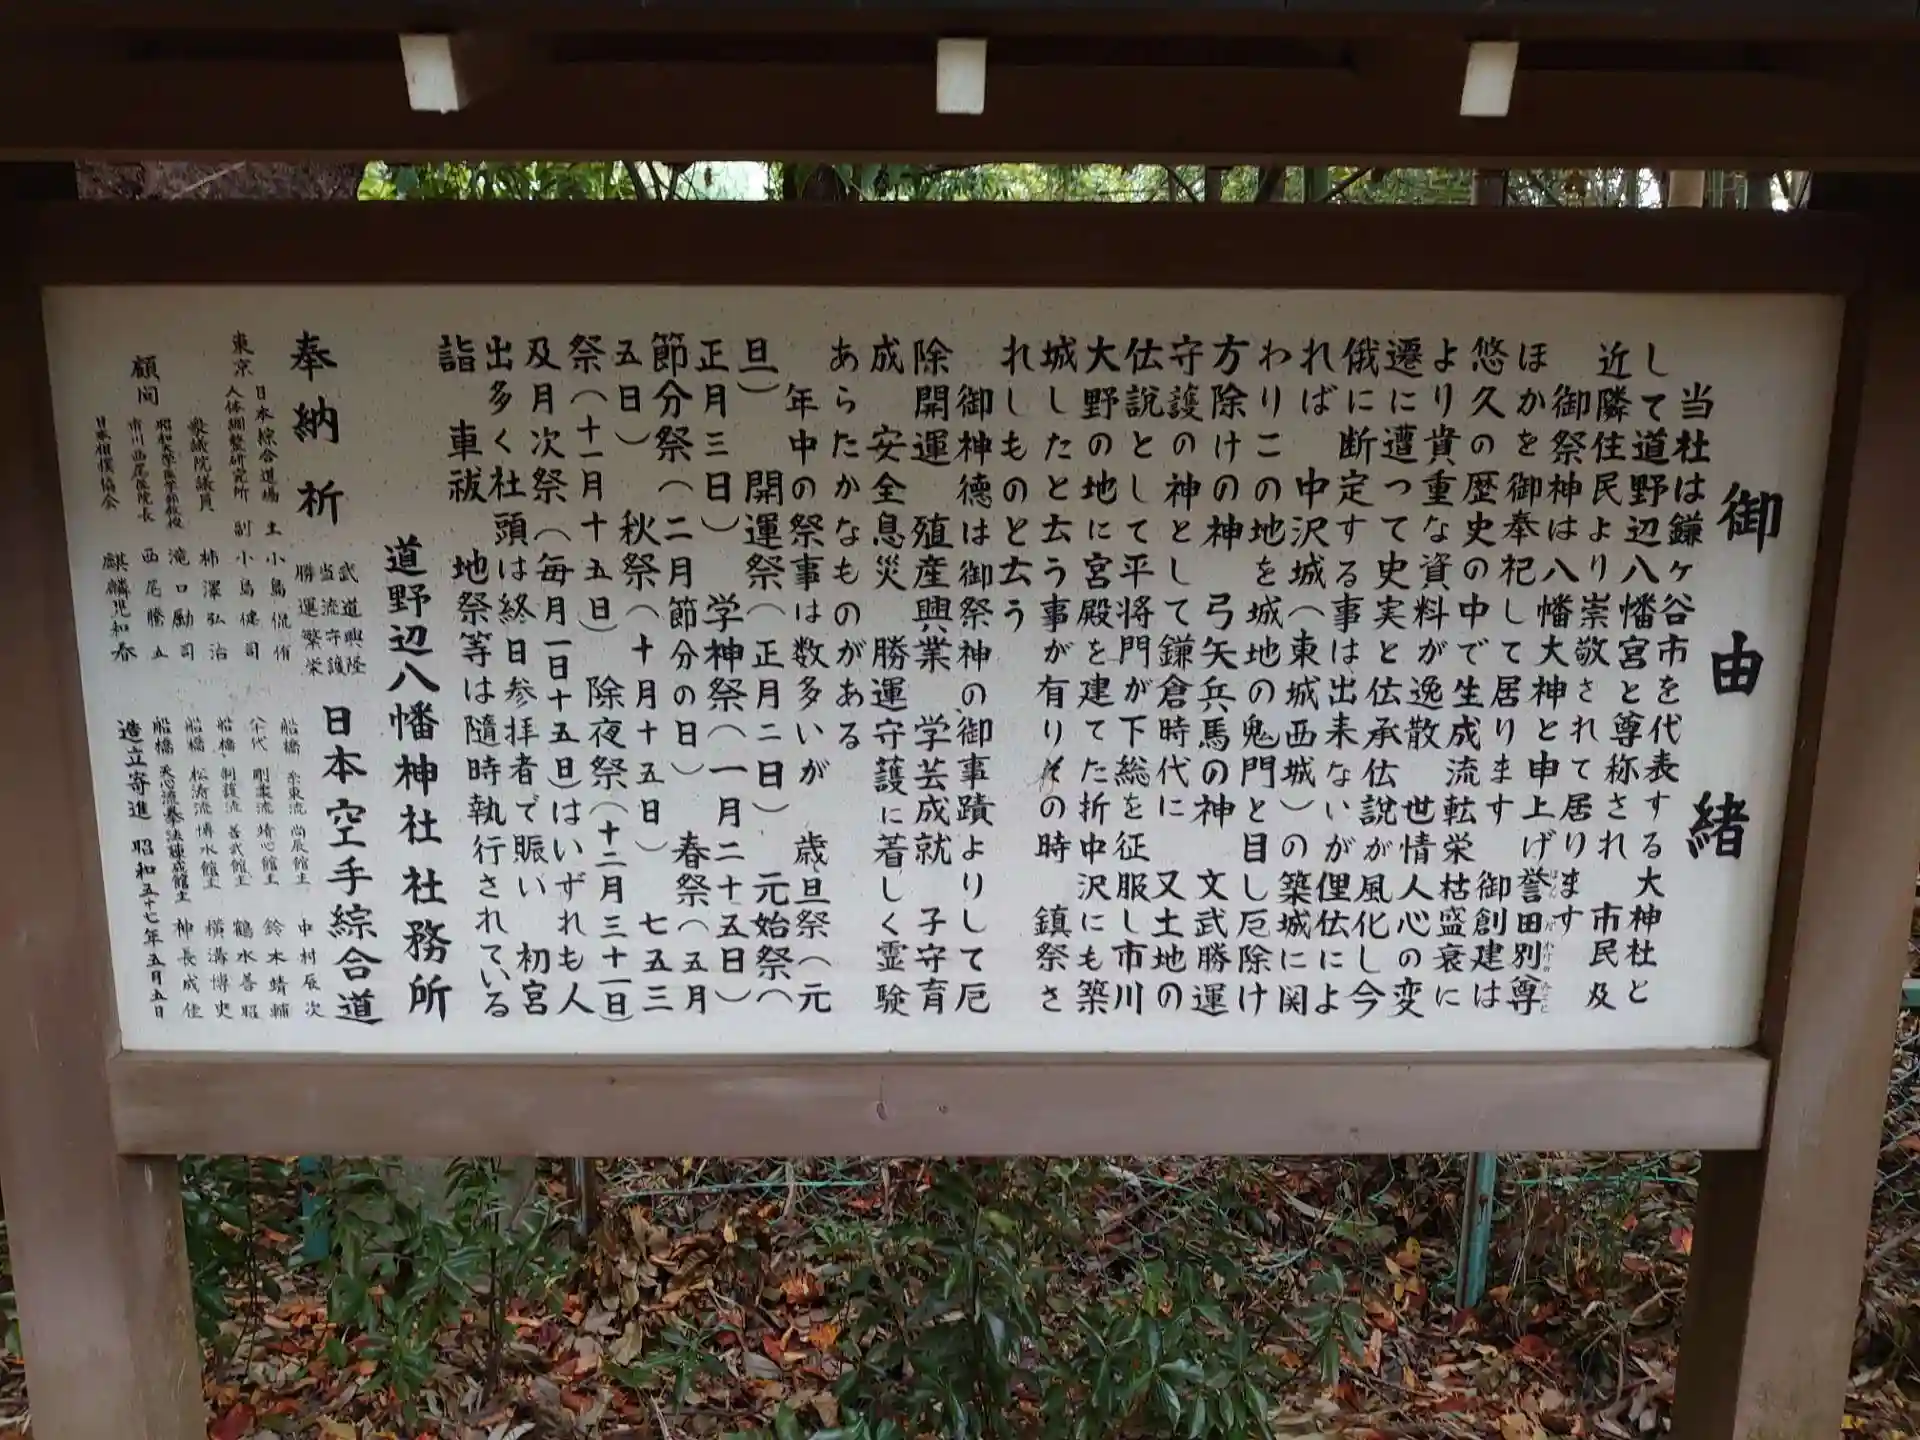 御由緒
当社は鎌ヶ谷市を代表する大神社と
して道野辺八幡宮と尊称され 市民及
近隣住民より崇敬されて居ります
御祭神は八幡大神と申上げ誉田別尊
ほかを御奉祀して居ります 御創建は
悠久の歴史の中で生成流転栄枯盛衰に
より貴重な資料が逸散 世情人心の変
遷に遭って史実と伝承伝説が風化し今
俄に断定する事は出来ないが俚伝によ
れば 中沢城(東城西城)の築城に関
わりこの地を城地の鬼門と目し厄除け
方除けの神 弓矢兵馬の神 文武勝運
守護の神として鎌倉時代に 又土地の
伝説として平将門が下総を征服し市川
大野の地に宮殿を建てた折中沢にも築
城したと云う事が有りその時 鎮祭さ
れしものと云う
御神徳は御祭神の御事蹟よりして厄
除開運 殖産興業 学芸成就 子守育
成 安全息災 勝運守護に着しく霊験
あらたかなものがある
年中の祭事は数多いが 歳旦祭(元
旦) 開運祭(正月二日) 元始祭(
正月三日) 学神祭(一月二十五日)
節分祭(二月節分の日) 春祭(五月
五日) 秋祭(十月十五日) 七五三
祭(十一月十五日) 除夜祭(十二月三十一日)
及月次祭(毎月一日十五日)はいずれも人
出多く社頭は終日参拝者で賑い 初宮
詣 車祓 地祭等は随時執行されている
道野辺八幡神社 社務所
奉納祈
武道興隆
当流守護
勝運繁栄
日本空手綜合道
日本綜合道場 主 小島侃侑
東京 人体調整研究所 副 小島健司
衆議院議員 柿澤弘治
昭和大学医学部教授 滝口勵司
顧問 市川西尾医院長 西尾勝五
日本相撲協会 麒麟児和春
船橋 糸東流 尚辰館主 中村辰次
八千代 剛柔流 靖心館主 鈴木靖輔
船橋 制護流 善武館主 鶴水善昭
船橋 松濤流 博水館主 横溝博史
船橋 天心流拳法錬成館主 神長成佳
造立寄進 昭和五十七年五月五日